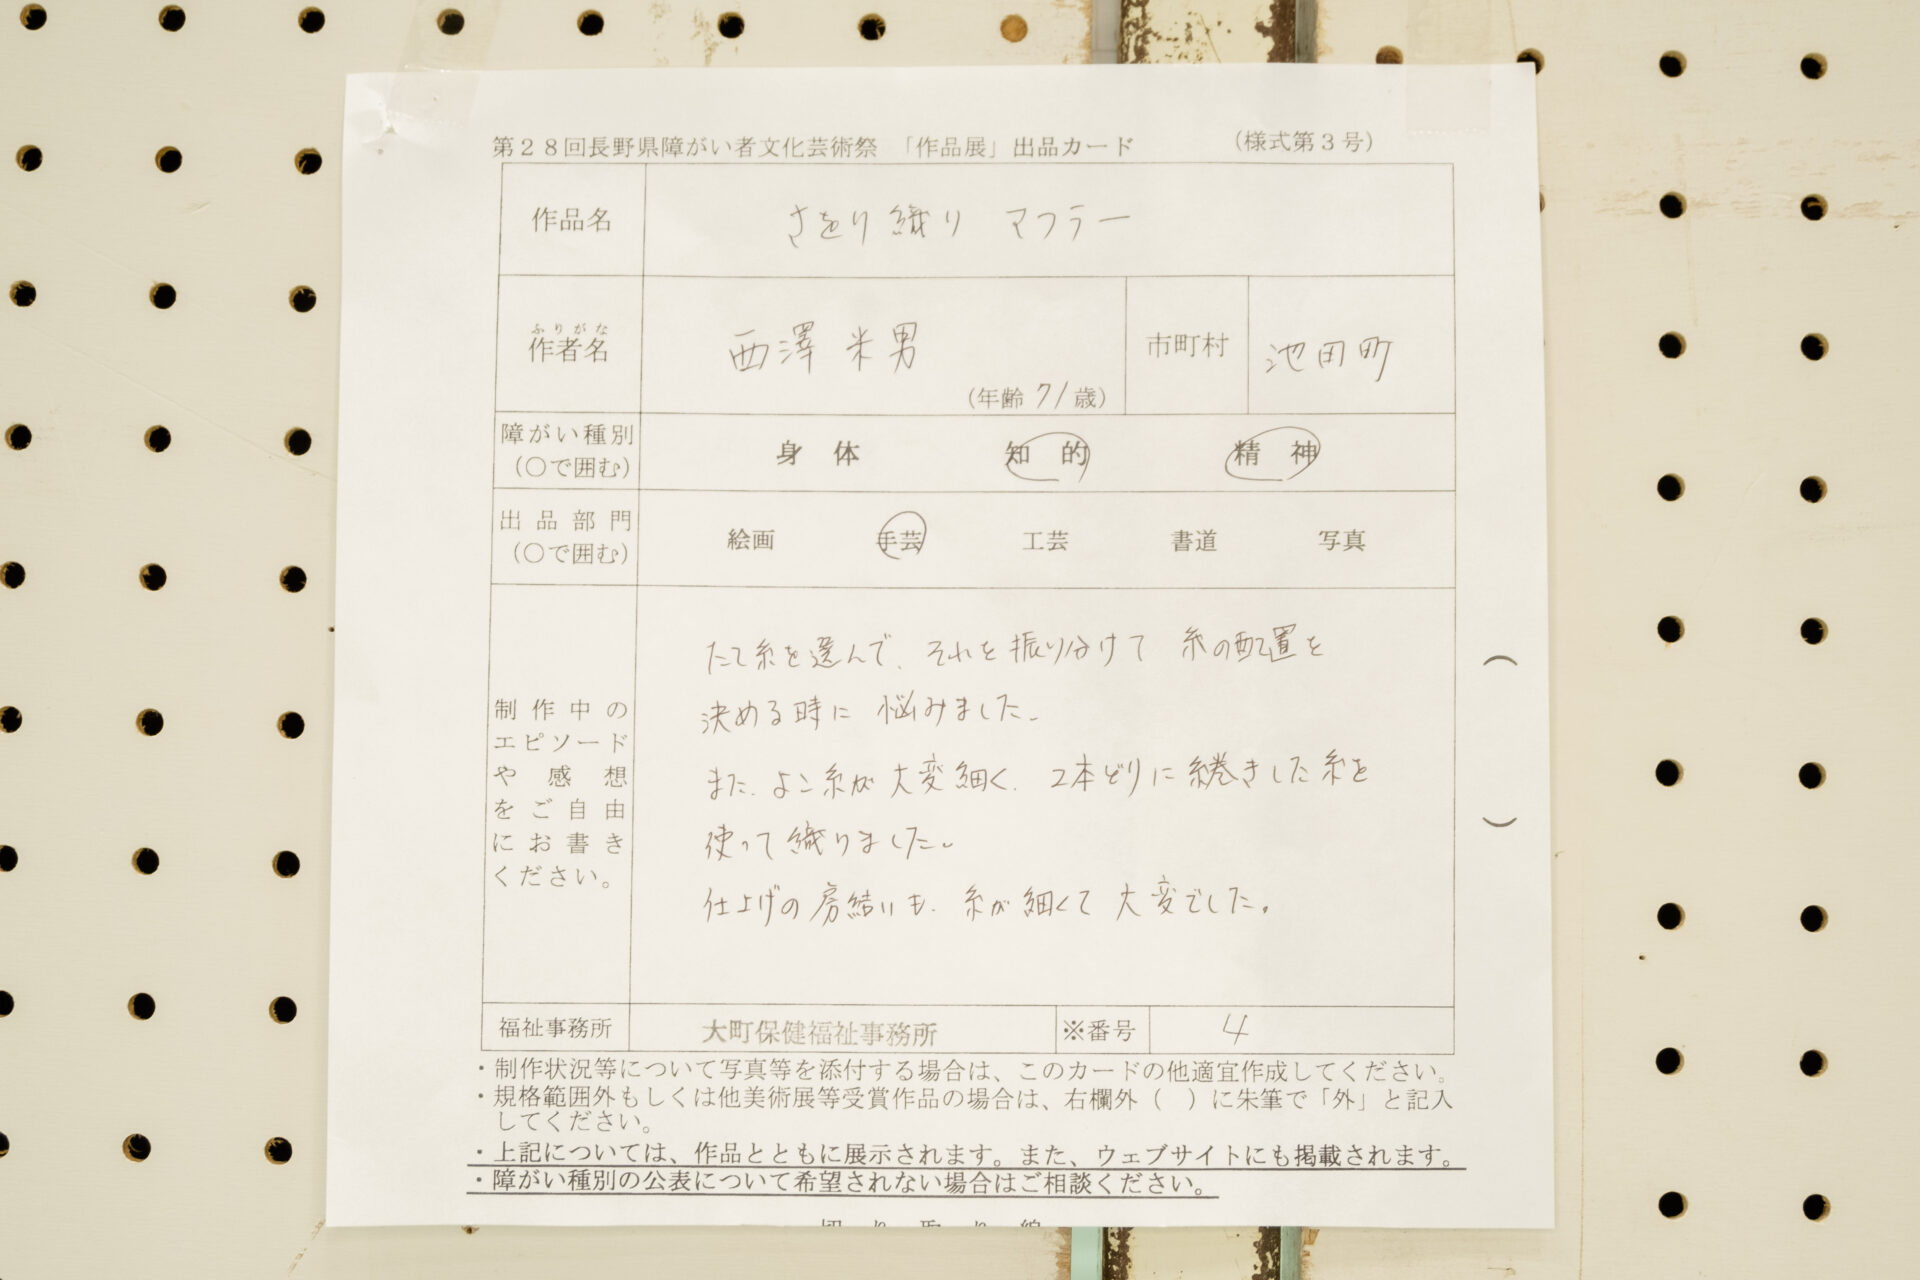 第２８回長野県障がい者文化芸術祭 「作品展」出品カード （様式第３号）
作品名 さをり織り マフラー
ふりがな
作者名 西澤 米男 （年齢 71歳） 市町村 池田町
障がい種別
（○で囲む） 身 体 知 的 精 神
出 品 部 門
（○で囲む） 絵画 手芸 工芸 書道 写真
制作中の
エピソード
や感想
をご自由
にお書き
ください。
たて糸を選んで、それを振り分けて 糸の配置を
決める時に 悩みました。
また、よこ糸が大変細く、2本どりに 綣きした糸を
使って織りました。
仕上げの房結いも、糸が細くて大変でした。
（ ）
福祉事務所 大町保健福祉事務所 ※番号 4
・制作状況等について写真等を添付する場合は、このカードの他適宜作成してください。
・規格範囲外もしくは他美術展等受賞作品の場合は、右欄外（ ）に朱筆で「外」と記入
してください。
・上記については、作品とともに展示されます。また、ウェブサイトにも掲載されます。
・障がい種別の公表について希望されない場合はご相談ください。
切 り 取 り 線